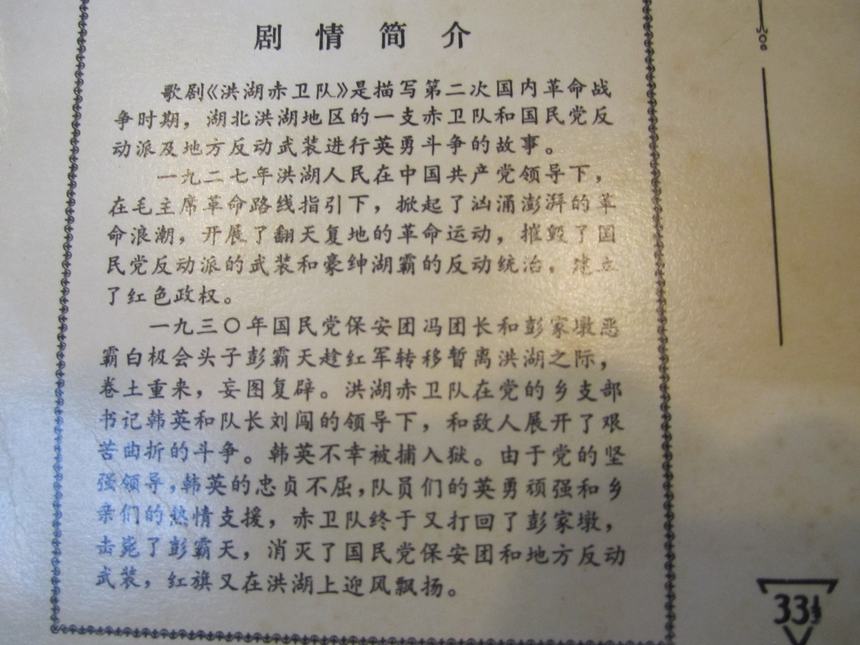 剧情简介
歌剧《洪湖赤卫队》是描写第二次国内革命战
争时期，湖北洪湖地区的一支赤卫队和国民党反
动派及地方反动武装进行英勇斗争的故事。
一九二七年洪湖人民在中国共产党领导下，
在毛主席革命路线指引下，掀起了汹涌澎湃的革
命浪潮，开展了翻天复地的革命运动，摧毁了国
民党反动派的武装和豪绅湖霸的反动统治，建立
了红色政权。
一九三〇年国民党保安团冯团长和彭家墩恶
霸白极会头子彭霸天趁红军转移暂离洪湖之际，
卷土重来，妄图复辟。洪湖赤卫队在党的乡支部
书记韩英和队长刘闯的领导下，和敌人展开了艰
苦曲折的斗争。韩英不幸被捕入狱。由于党的坚
强领导，韩英的忠贞不屈，队员们的英勇顽强和乡
亲们的热情支援，赤卫队终于又打回了彭家墩，
击毙了彭霸天，消灭了国民党保安团和地方反动
武装，红旗又在洪湖上迎风飘扬。
33⅓